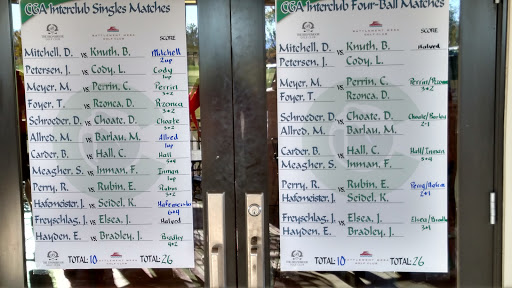 CGA Interclub Singles Matches
BATTLEMENT MESA
GOLF CLUB
SCORE
Mitchell, D. vs Knuth, B. Mitchell
2up
Petersen, J. vs Cody, L. Cody
1up
Meyer, M. vs Perrin, C. Perrin
3+2
Foyer, T. vs Rzonca, D. Rzonca
3+2
Schroeder, D. vs Choate, D. Choate
3+2
Allred, M. vs Barlau, M. Allred
1up
Carder, B. vs Hall, C. Hall
Meagher, S. vs Inman, F. Inman
1up
Perry, R. vs Rubin, E. Rubin
3+2
Hafemeister, J. vs Seidel, K. Hafemeister
6+4
Freyschlag, J. vs Elsea, J. Halved
Hayden, E. vs Bradley, J. Bradley
4+2
TOTAL: 10 BATTLEMENT MESA TOTAL: 26
CGA Interclub Four-Ball Matches
BATTLEMENT MESA
GOLF CLUB
SCORE
Mitchell, D. vs Knuth, B. Halved
Petersen, J. Cody, L.
Meyer, M. vs Perrin, C. Perrin/Rzonca
3+2
Foyer, T. Rzonca, D.
Schroeder, D. vs Choate, D. Choate/Barlau
2+1
Allred, M. Barlau, M.
Carder, B. vs Hall, C. Hall/Inman
5+4
Meagher, S. Inman, F.
Perry, R. vs Rubin, E.
2+1
Hafemeister, J. Seidel, K.
Freyschlag, J. vs Elsea, J. Elsea/Bradley
3+1
Hayden, E. Bradley, J.
TOTAL: 10 BATTLEMENT MESA TOTAL: 26